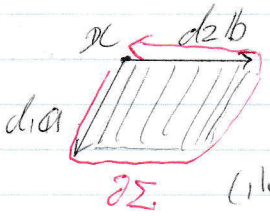 x d₂b
d₁a
∂Σ